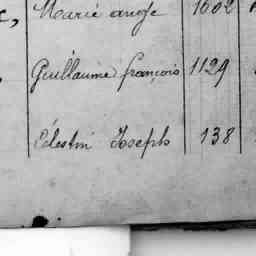 Marie ange 1002
Guillaume françois 1129
Célestin Joseph 138